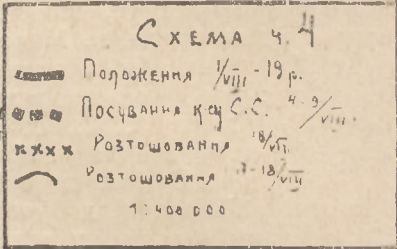 Схема ч. 4
Положення 1/VIII - 19 р.
Посування С.С. 4-9/VIII
Розтошовання 18/VII
Розтошовання 18/VIII
1:400 000